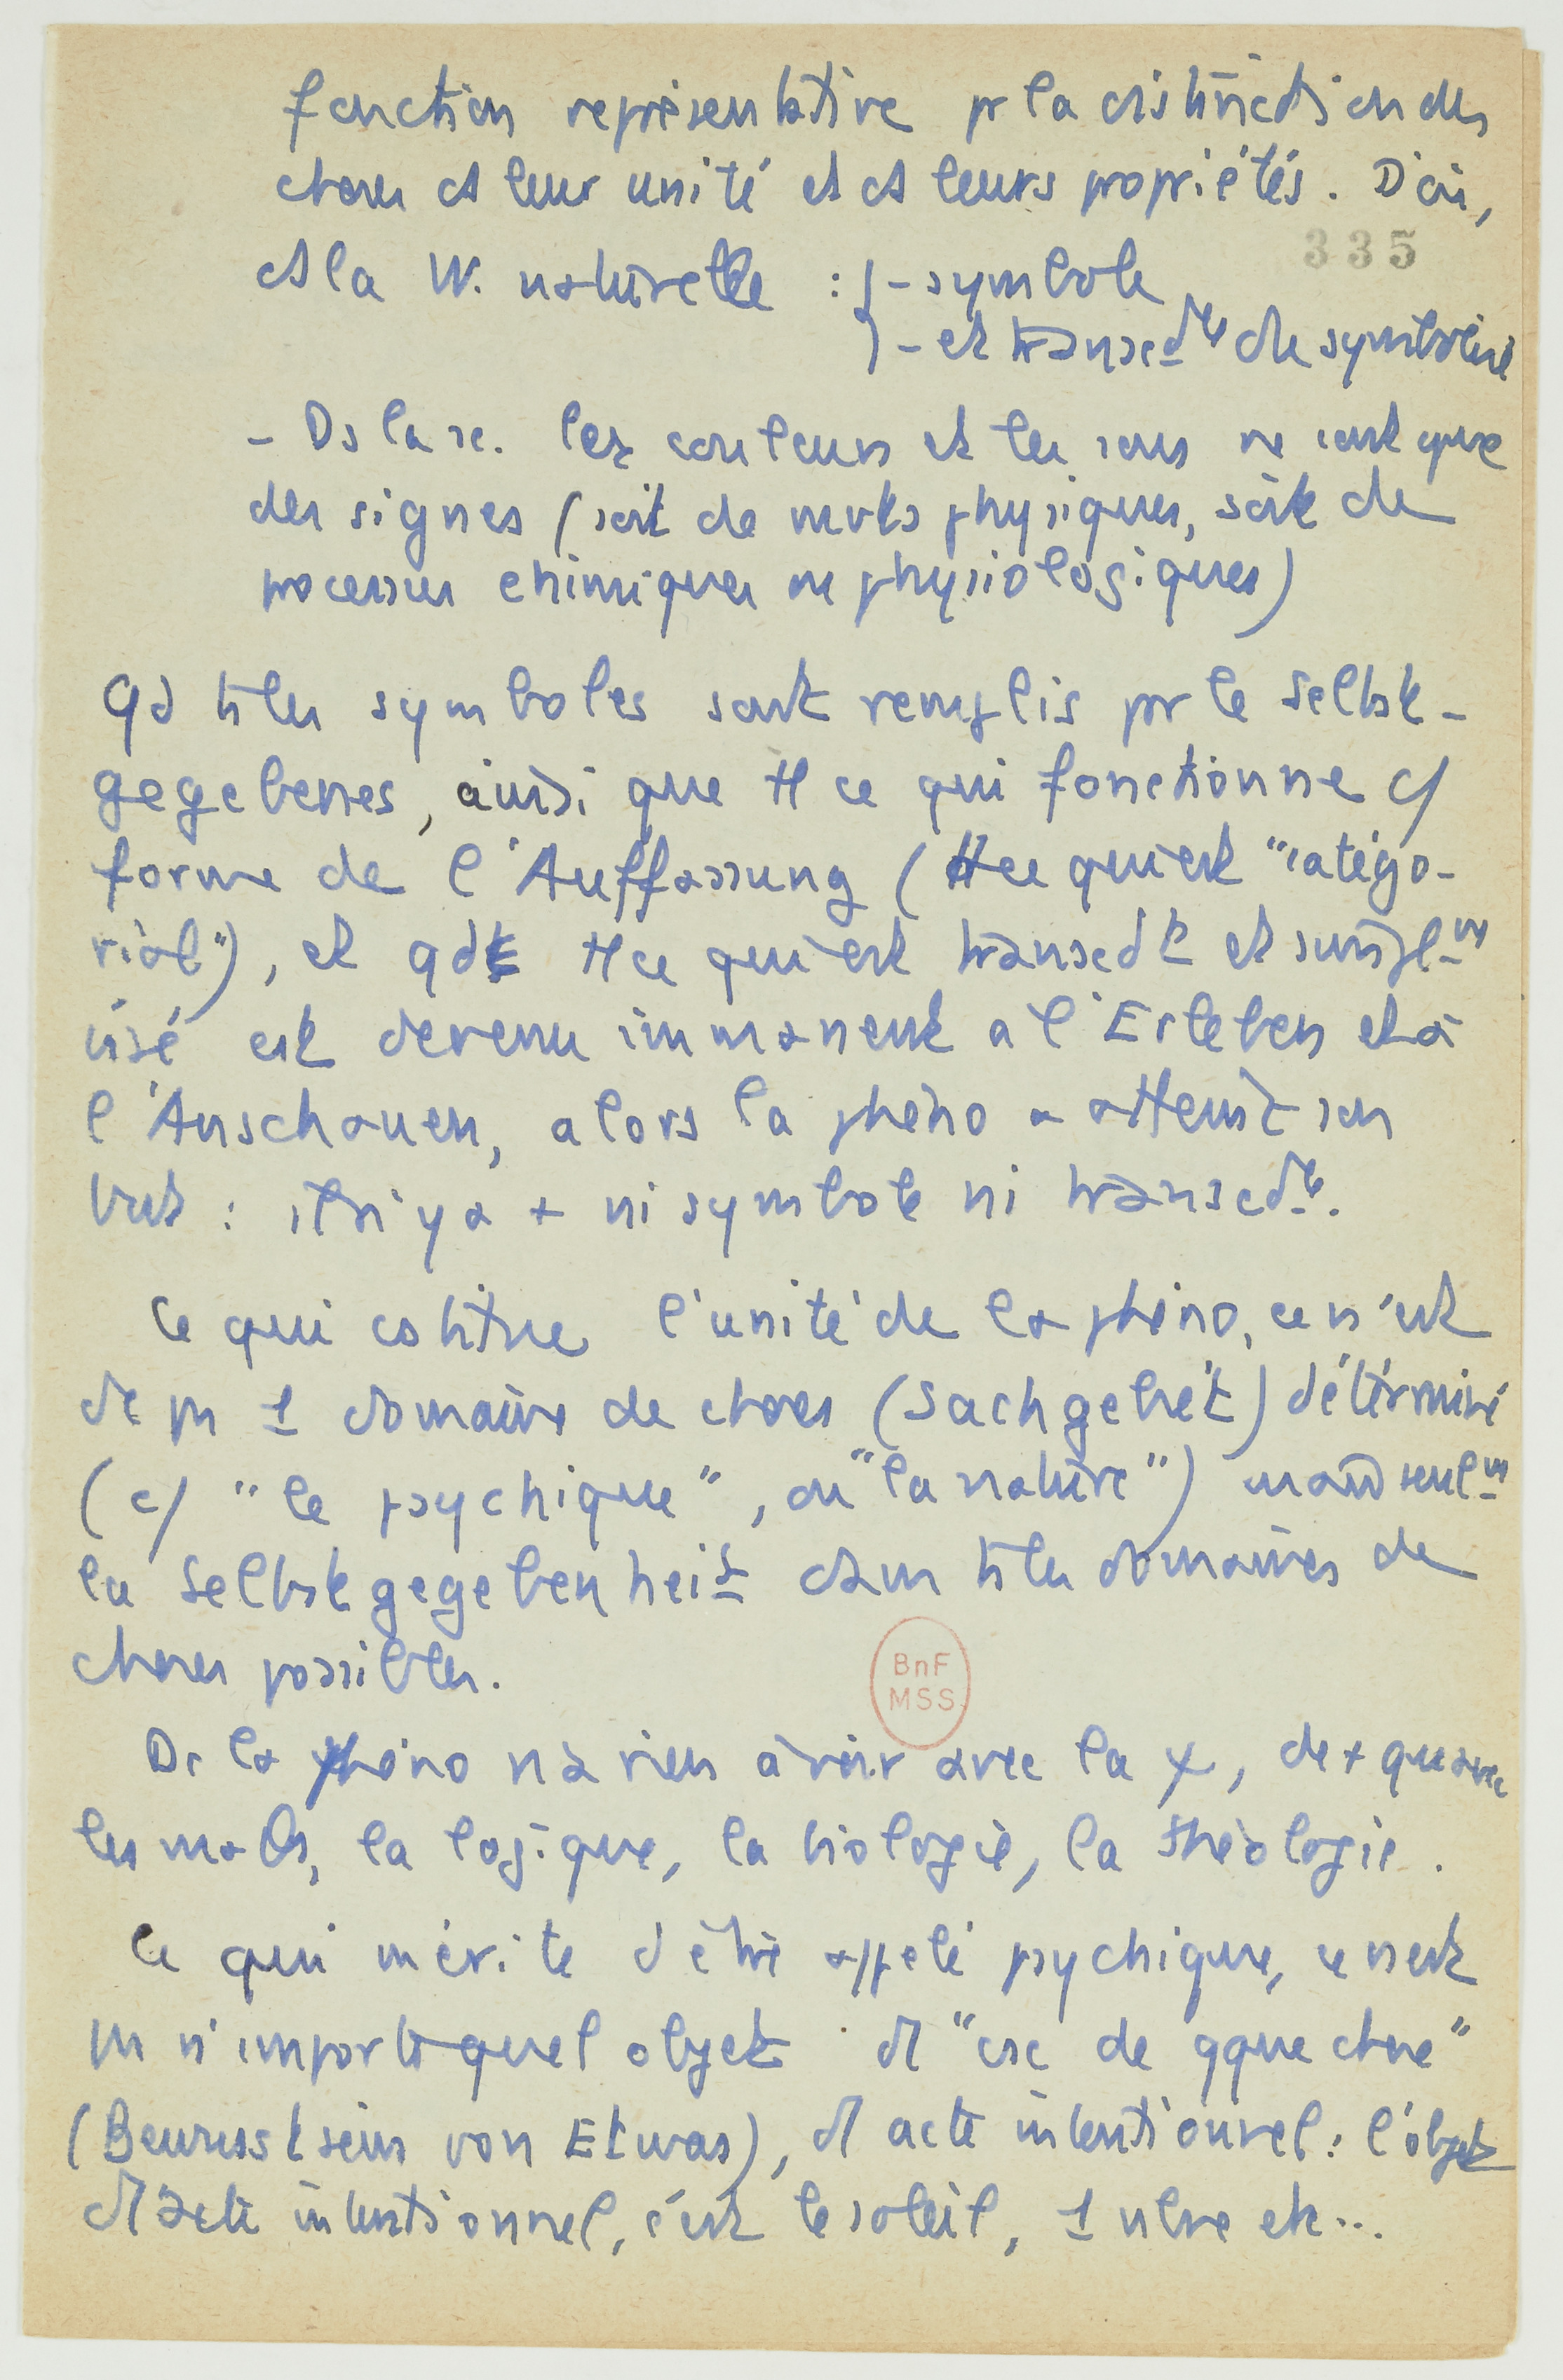 fonction représentative pr la distinction des
choses ds leur unité et ds leurs propriétés. D'où,
ds la W. naturelle : - symbole
335
- et transcdce de symbolisé
- Ds la sc. les couleurs et les sons ne sont que
des signes (soit de mvts physiques, soit de
processus chimiques ou physiologiques)
Qd ts les symboles sont remplis pr le Selbst-
gegebenes, ainsi que tt ce qui fonctionne c/
forme de l'Auffassung (tt ce qui est "catégo-
rial"), et qd tt ce qui est transcdt et simplmt
visé est devenu immanent à l'Erleben et à
l'Anschauen, alors la phéno a atteint son
but : il n'y a + ni symbole ni transcdce.
Ce qui constitue l'unité de la phéno, ce n'est
dc pas 1 domaine de choses (Sachgebiet) déterminé
(c/ "le psychique", ou "la nature") mais seulmt
la Selbstgegebenheit dans ts les domaines de
choses possibles.
Dc la phéno n'a rien à voir avec la ψ, de + qu'avec
les maths, la logique, la biologie, la théologie.
Ce qui mérite d'être appelé psychique, ce n'est
pas n'importe quel objet d "csc de qque chose"
(Bewusstsein von Etwas), d'acte intentionnel : l'objet
d'acte intentionnel, c'est le soleil, 1 nbre etc...
BnF
MSS